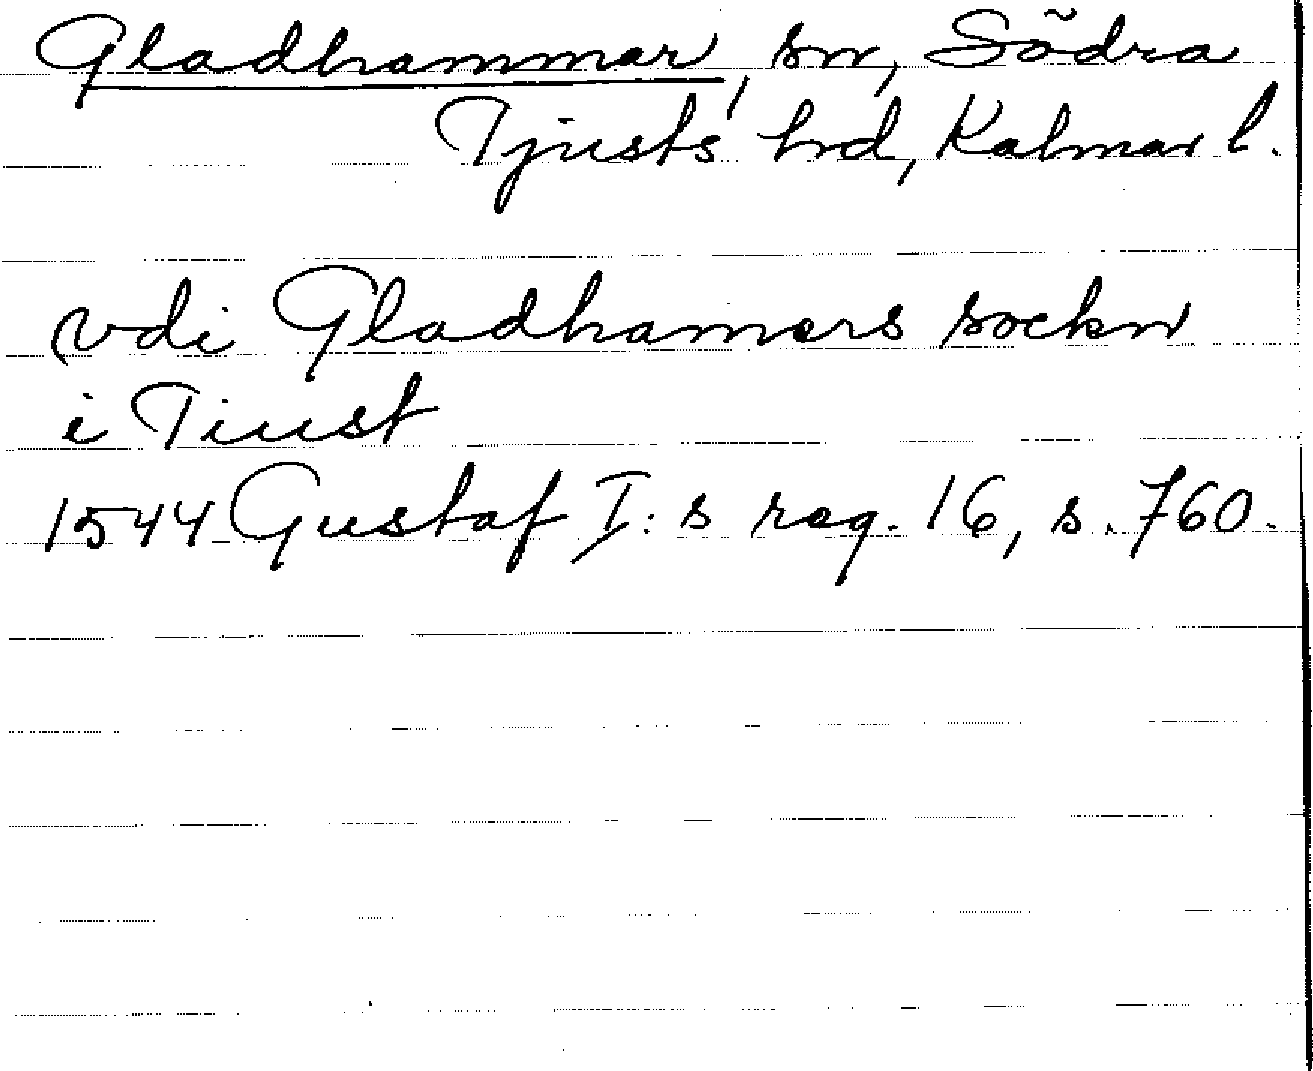 Gladhammar, sn, Södra
Tjusts hrd, Kalmar l.
vdi Gladhamers sockn
i Tiust
1544 Gustaf I:s reg. 16, s. 760.